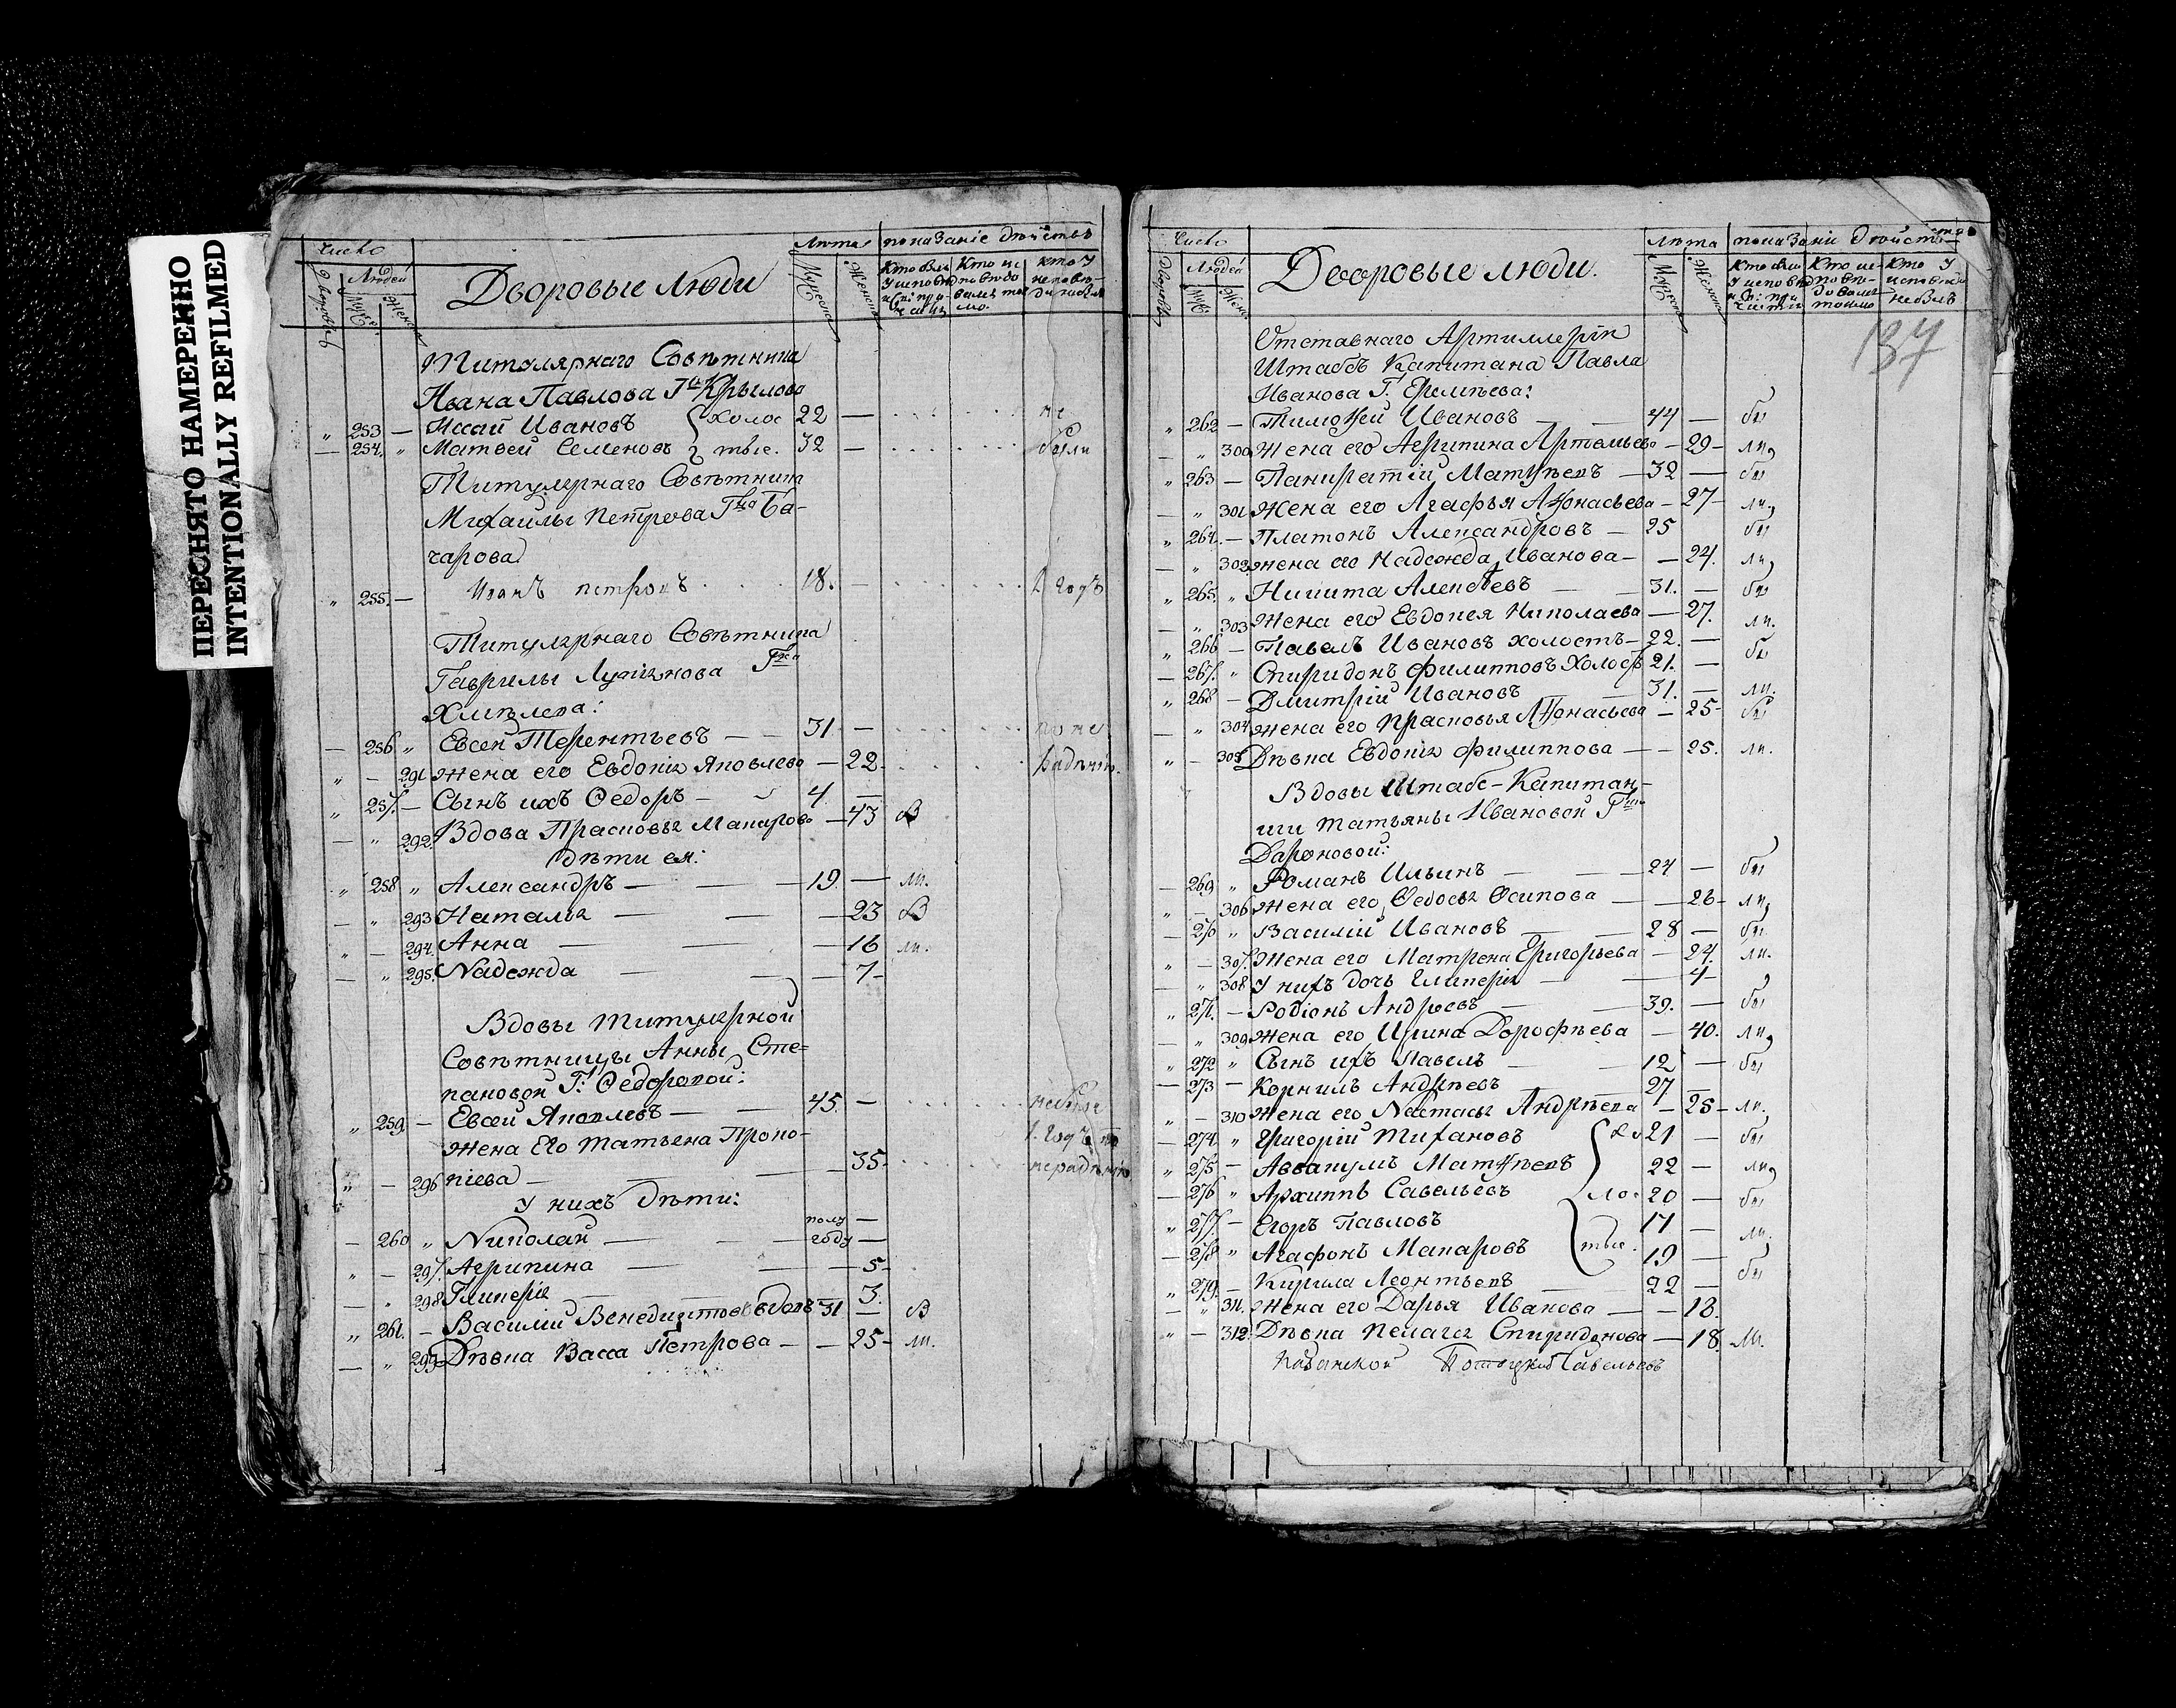 ПЕРЕСНЯТО НАМЕРЕННО
INTENTIONALLY REFILMED
Число Лѣта показаніе дѣйствъ
Людей
Дворовые люди
Титулярнаго Совѣтника
Ивана Павлова Гна Крылова
" 253 — Исай Ивановъ холос 22 — не
— 254 " Матвей Семеновъ тые. 32 — были
Титулярнаго Совѣтника
Михаилы Петрова Гна Ба-
чарова
" 255 — Иванъ петровъ 18. — 2 годъ
Титулярнаго Совѣтника
Гаврилы
— 256 " Евсей Терентьевъ — 31 — по не
" — 291 жена его Евдокія Яковлева — 22 радѣнію.
" 257. — Сынъ ихъ Ѳедоръ — 4 —
— " 292 Вдова Прасковья Макарова — 43 В
дѣти ея:
" 258 " Александръ — 19. — ли.
— " 293 Наталья — 23 В
" — 294 Анна — 16 ли.
— " 295 Надежда — 7 —
Вдовы титулярной
Совѣтницы Анны Сте=
пановой Г: Ѳедоровой:
" 259 — Евсей Яковлевъ — 45. —
Жена Его Татьяна Проко-
" — 296 піева — 35. нерадѣнію
У нихъ дѣти:
— 260 " Николай — полу году —
" — 297. Агрипина — 5 —
— " 298 Гликерія — 3.
" 261. — Василій Венедиктовъ вдовъ 31 — В
— " 299 Дѣвка Васса Петрова — 25 — ли.
Число Лѣта показаніе дѣйства
Людей
Дворовые люди.
137
Отставнаго Артиллеріи
Штабсъ Капитана Павла
Иванова Г. Еремѣева:
" 262 — Тимоѳей Ивановъ — 44 — бы
— " 300 Жена его Агрипина Артемьева — 29 — ли,
" 263 — Панкратій Матвѣевъ — 32 — бы
— " 301 Жена его Агафья Аѳонасьева — 27 — ли,
" 264. — Платонъ Александровъ — 25 бы
— " 302 жена его Надежда Иванова — 24. ли,
" 265. " Никита Алексѣевъ — 31. — бы
— " 303 Жена его Евдокея Николаева — 27. ли.
" 266 — Павелъ Ивановъ холостъ — 22. — бы
— 267. " Спиридонъ Филипповъ Холост 21. —
" 268 — Дмитрій Ивановъ — 31. — ли.
— " 304 жена его Прасковья Аѳонасьева — 25 — бы
" — 305 Дѣвка Евдокія Филиппова — 25. ли.
Вдовы Штабс-Капитан-
ши Татьяны Ивановой Гжи
Дароновой:
— 269 " Романъ Ильинъ — 24 — бы
" — 306 жена его, Ѳедосья Осипова — 26 — ли,
— 270 " Василій Ивановъ — 28 — бы
" — 307. Жена его Матрена Григорьева — 24. ли.
— " 308 У нихъ дочь Гликерія — 4 —
" 271. — Родіонъ Андреевъ — 39. — бы
— " 309 Жена его Ирина Дорофѣева — 40. ли,
" 272 " Сынъ ихъ Павелъ — 12 — бы
— 273 — Корнилъ Андрѣевъ — 27 —
" — 310 Жена его Настасья Андрѣева — 25 — ли.
— 274. " Григорій Тихановъ хо 21 — бы
" 275 — Аввакумъ Матвѣевъ 22 — ли,
— 276 " Архиппъ Савельевъ лос 20 — бы
" 277. — Егоръ Павловъ 17 — ли.
— 278 " Агафонъ Макаровъ тые. 19 —
" 279. — Кирила Леонтьевъ 22 — бы
— " 311. Жена его Дарья Иванова — 18.
" — 312. Дѣвка Пелагея Спиридонова — 18. ли.
Савельевъ